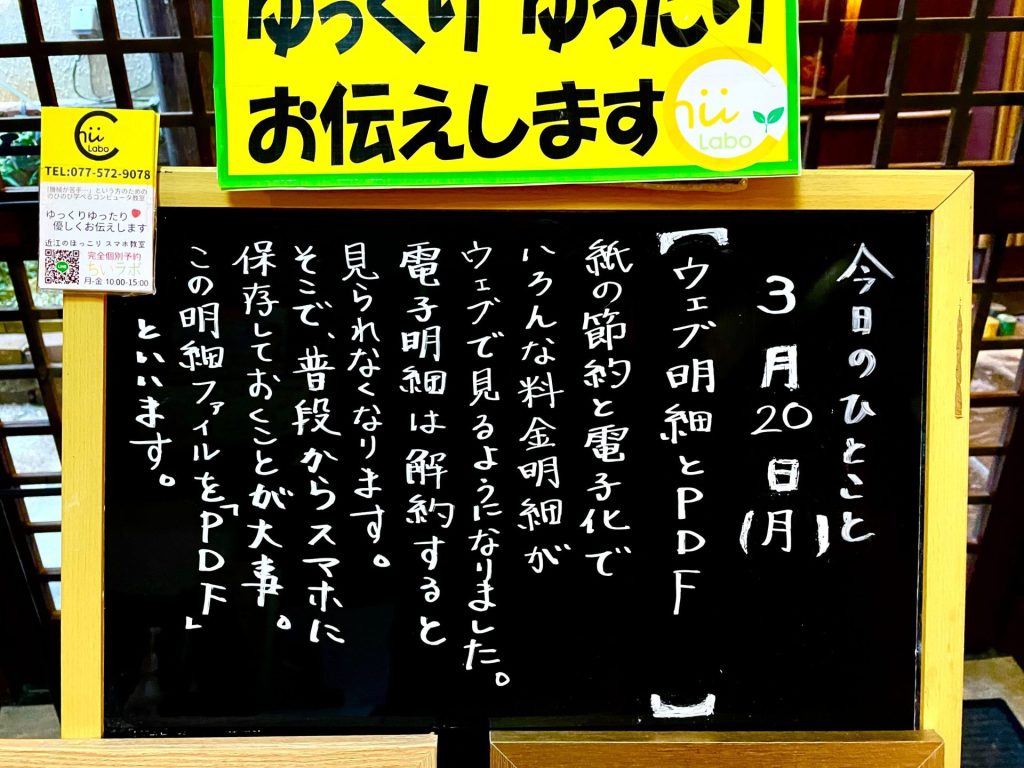 ゆっくり ゆったり
お伝えします
Chii
Labo
Chii
Labo
TEL:077-572-9078
「機械が苦手…」という方のための
のびのび学べるコンピュータ教室
ゆっくりゆったり
優しくお伝えします
近江のほっこりスマホ教室
完全個別予約
ちいラボ
月-金 10:00-15:00
LINE
今日のひとこと
3月20日(月)
【ウェブ明細とPDF】
紙の節約と電子化で
いろんな料金明細が
ウェブで見るようになりました。
電子明細は解約すると
見られなくなります。
そこで、普段からスマホに
保存しておくことが大事。
この明細ファイルを「PDF」
といいます。